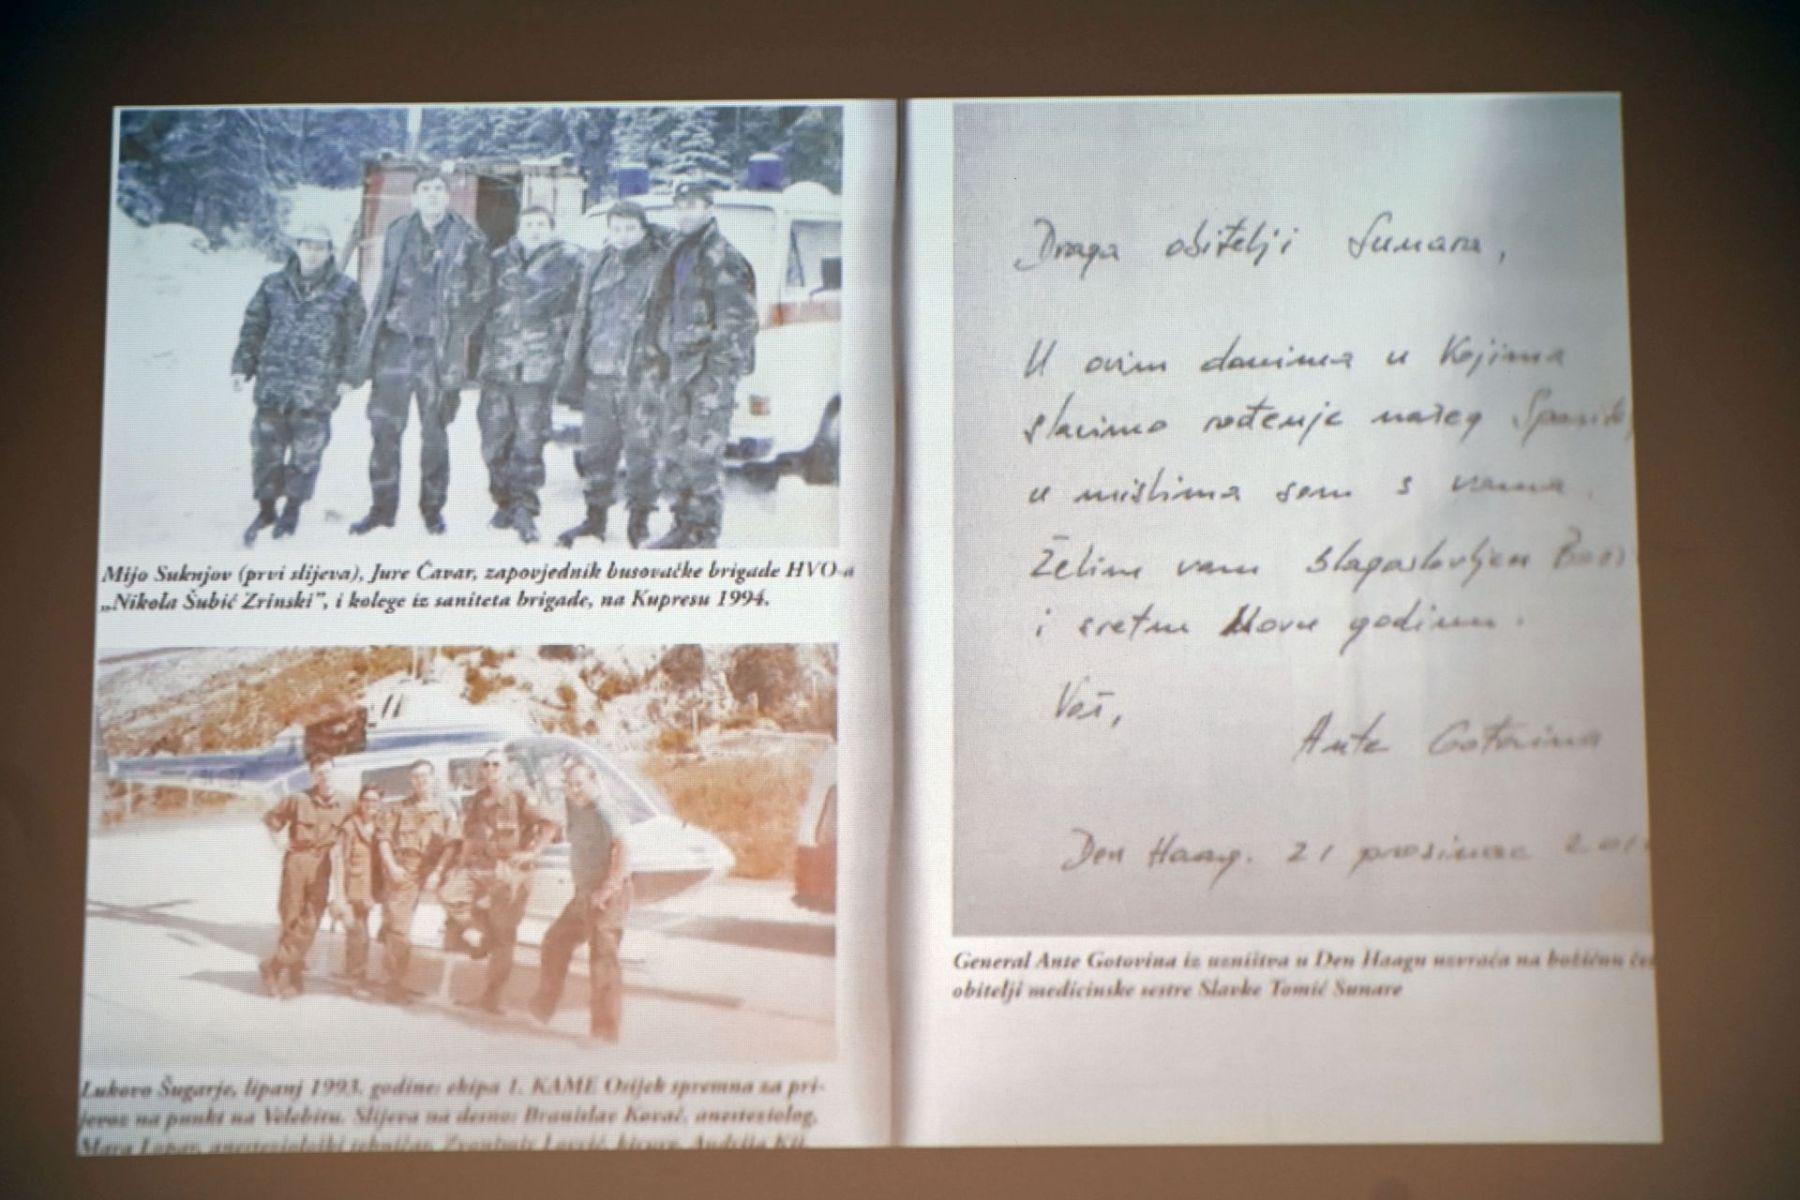 Mijo Suknjov (prvi slijeva), Jure Čavar, zapovjednik busovačke brigade HVO-a
„Nikola Šubić Zrinski”, i kolege iz saniteta brigade, na Kupresu 1994.
Lukovo Šugarje, lipanj 1993. godine: ekipa 1. KAME Osijek spremna za pri-
jevoz na punkt na Velebitu. Slijeva na desno: Branislav Kovač, anesteziolog,
Mara Lopar, anesteziološki tehničar, Zvonimir Lovrić, kirurg, Andrija
Draga obitelji Sunara,
U ovim danima u Kojima
slavimo rođenje našeg
u mislima sam s vama.
Želim vam blagoslovljen
i sretnu Novu godinu.
Vaš,
Ante Gotovina
Den Haag. 21 prosinac
General Ante Gotovina iz uzništva u Den Haagu uzvraća na božićnu
obitelji medicinske sestre Slavke Tomić Sunare